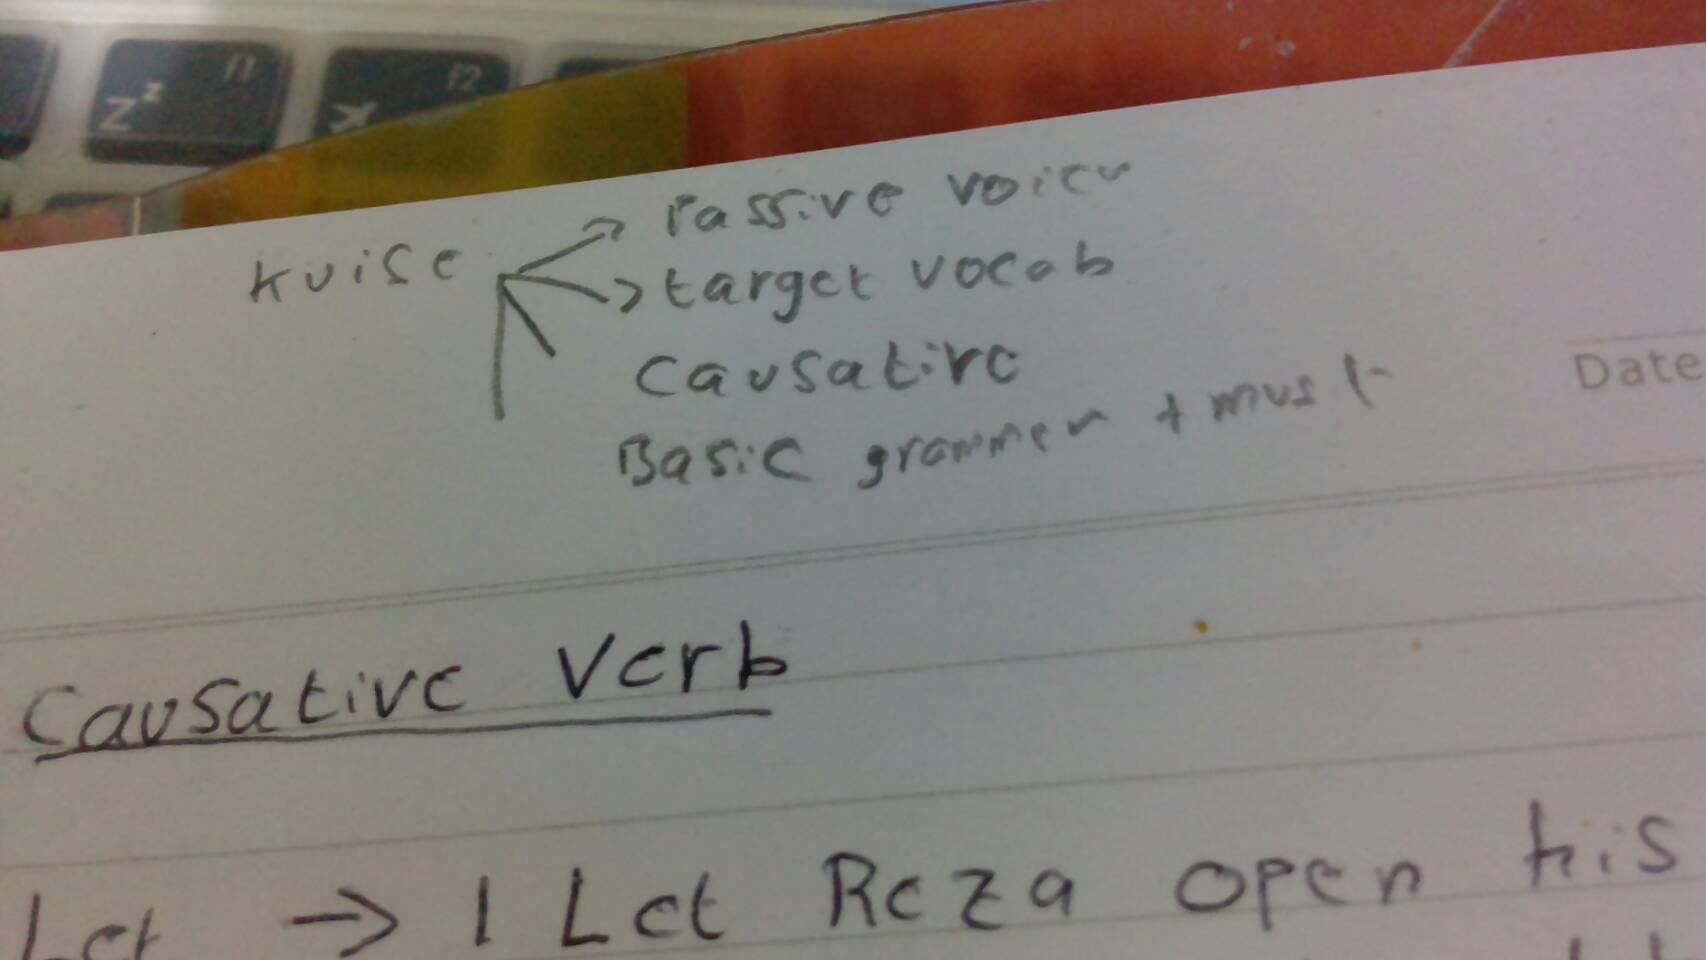 f1
f2
Zz
kuise
Passive voice
target vocab
Causative
Basic grammer + must
Date
Causative Verb
Let → I Let Reza open his